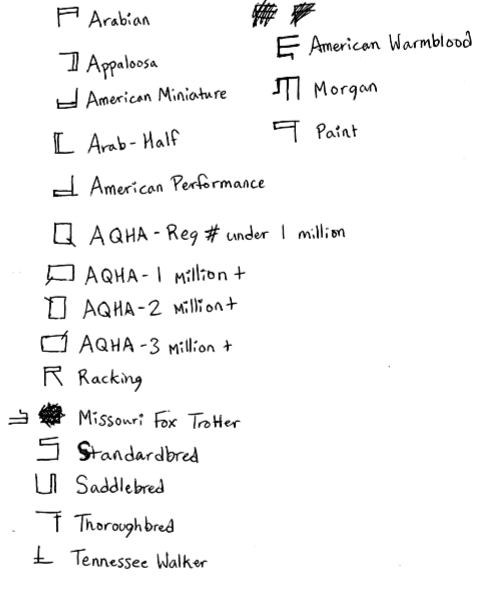 Arabian
Appaloosa
American Miniature
Arab-Half
American Performance
AQHA - Reg # under 1 million
AQHA - 1 Million +
AQHA - 2 Million +
AQHA - 3 Million +
Racking
Missouri Fox Trotter
Standardbred
Saddlebred
Thoroughbred
Tennessee Walker
American Warmblood
Morgan
Paint